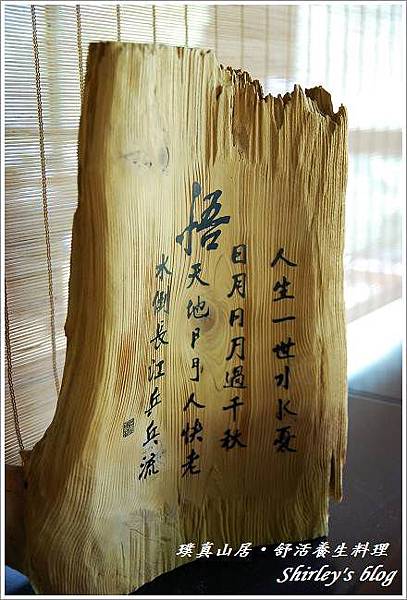 悟
人生一世水
日月日月過千秋
天地人快老
水倒長江乒乓流
璞真山居・舒活養生料理
Shirley's blog